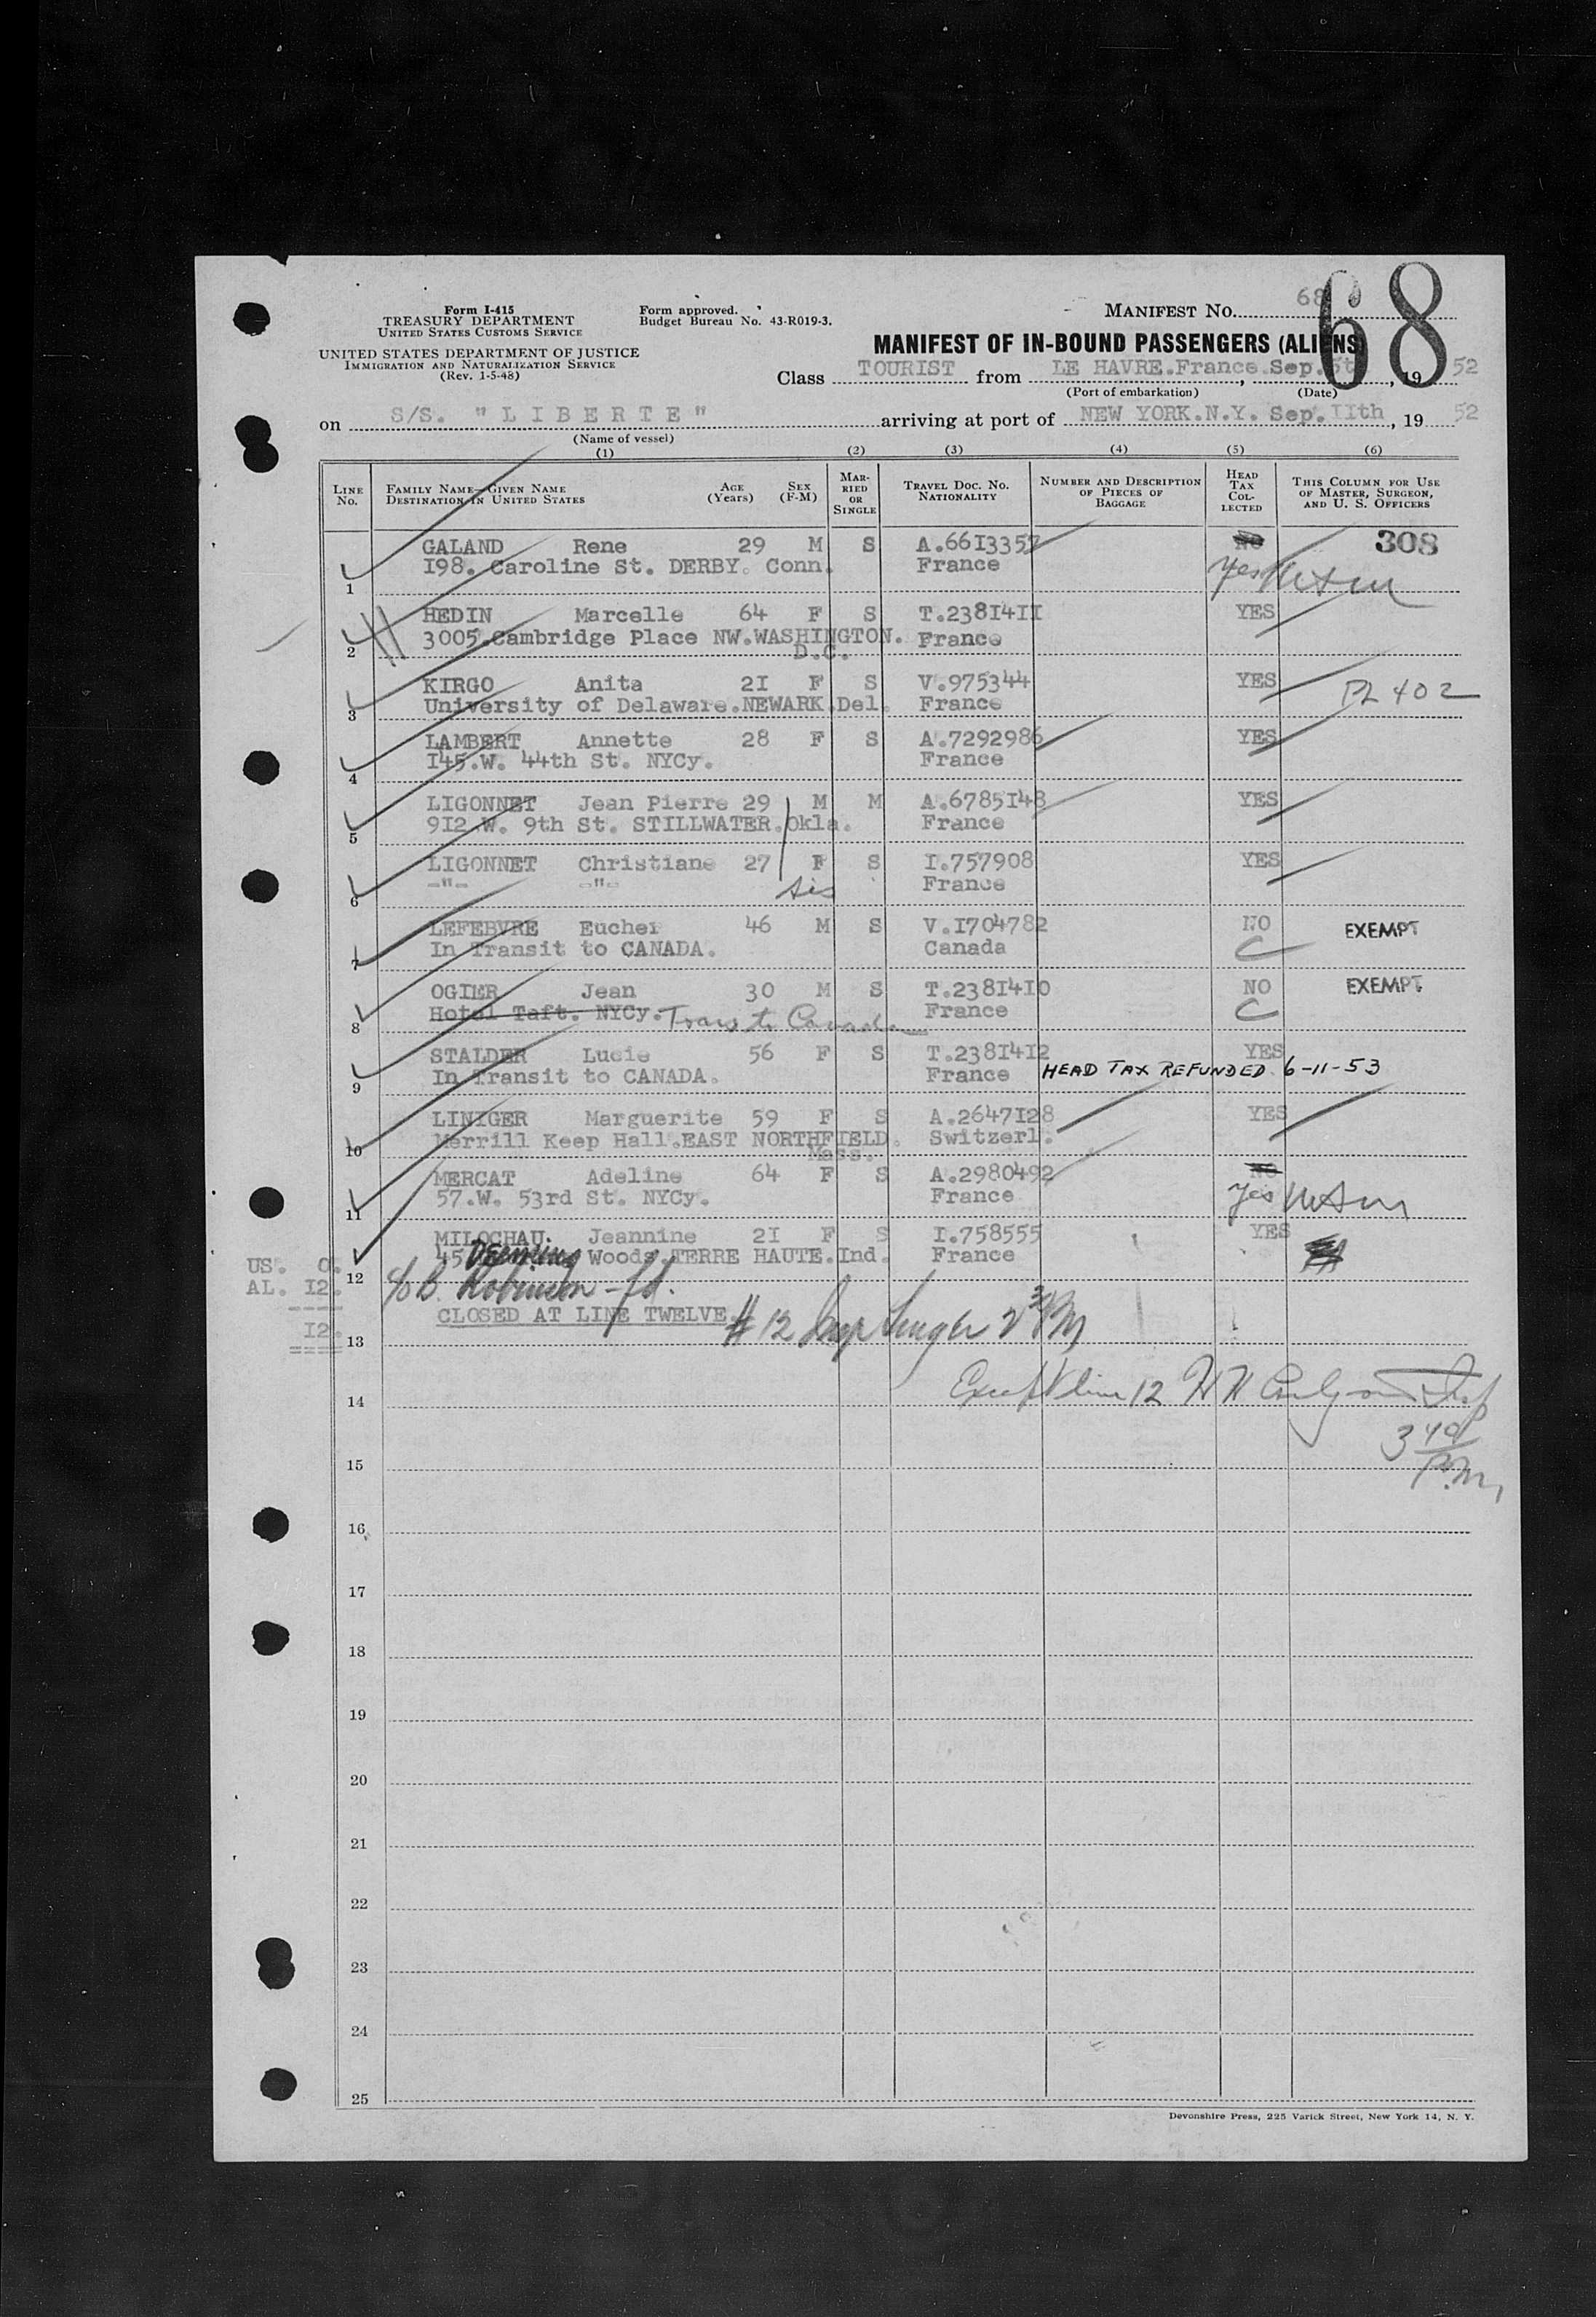 Form I-415
TREASURY DEPARTMENT
UNITED STATES CUSTOMS SERVICE
UNITED STATES DEPARTMENT OF JUSTICE
IMMIGRATION AND NATURALIZATION SERVICE
(Rev. 1-5-48)
Form approved.
Budget Bureau No. 43-R019-3.
MANIFEST No. 68
68
MANIFEST OF IN-BOUND PASSENGERS (ALIENS)
Class TOURIST from LE HAVRE.France. Sep. 5th, 1952
(Port of embarkation) (Date)
on S/S. "LIBERTE" arriving at port of NEW YORK.N.Y. Sep. IIth, 1952
(Name of vessel)
(1) (2) (3) (4) (5) (6)
LINE No. FAMILY NAME—GIVEN NAME DESTINATION IN UNITED STATES AGE (Years) SEX (F-M) MARRIED OR SINGLE TRAVEL DOC. No. NATIONALITY NUMBER AND DESCRIPTION OF PIECES OF BAGGAGE HEAD TAX COLLECTED THIS COLUMN FOR USE OF MASTER, SURGEON, AND U. S. OFFICERS
GALAND Rene 29 M S A.66I3352 No 308
1 I98. Caroline St. DERBY. Conn. France Yes
HEDIN Marcelle 64 F S T.238I4II YES
2 3005.Cambridge Place NW.WASHINGTON. France
D.C.
KIRGO Anita 2I F S V.975344 YES PL 402
3 University of Delaware.NEWARK.Del. France
LAMBERT Annette 28 F S A.7292986 YES
4 I45.W. 44th St. NYCy. France
LIGONNET Jean Pierre 29 M M A.6785I48 YES
5 9I2.W. 9th St. STILLWATER.Okla. France
LIGONNET Christiane 27 F S I.757908 YES
6 -"- -"- sis France
LEFEBVRE Eucher 46 M S V.I704782 NO EXEMPT
7 In Transit to CANADA. Canada C
OGIER Jean 30 M S T.238I4I0 NO EXEMPT
8 Hotel Taft. NYCy. Trans to Canada France C
STALDER Lucie 56 F S T.238I4I2 YES
9 In Transit to CANADA. France HEAD TAX REFUNDED 6-11-53
LINIGER Marguerite 59 F S A.2647I28 YES
10 Merrill Keep Hall.EAST NORTHFIELD. Switzerl.
Mass.
MERCAT Adeline 64 F S A.2980492 No
11 57.W. 53rd St. NYCy. France Yes
MILOCHAU. Jeannine 2I F S I.758555 YES
12 45 Deeming Woods.TERRE HAUTE.Ind. France
US. 0.
AL. I2.
I2.
c/o B. Robinson
13 CLOSED AT LINE TWELVE. #12
14 Except line 12
3 40 P.M.
15
16
17
18
19
20
21
22
23
24
25
Devonshire Press, 225 Varick Street, New York 14, N. Y.